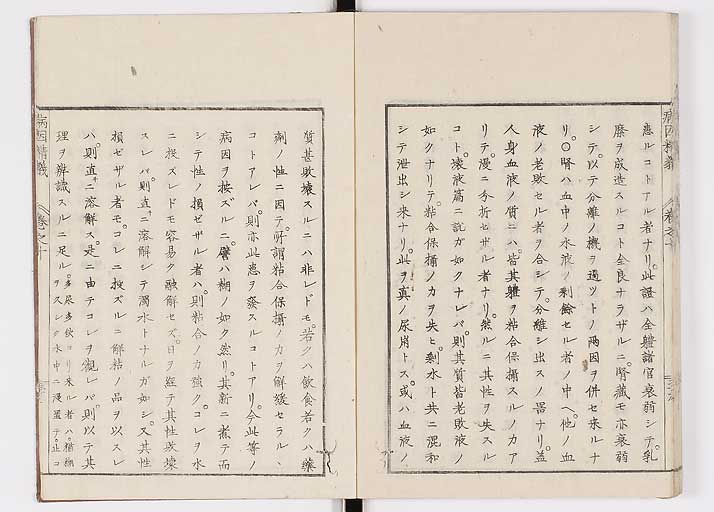 患ルコトアル者ナリ。此證ハ全軀諸官衰弱シテ。乳
糜ヲ成造スルコト全良ナラザルニ。腎蔵モ亦衰弱
シテ。以テ分離ノ機ヲ過ツトノ両因ヲ併セ来ルナ
リ。〇腎ハ血中ノ水液ノ剰餘セル者ノ中ヘ。他ノ血
液ノ老敗セル者ヲ合シテ。分離シ出スノ器ナリ。蓋
人身血液ノ質ニハ。皆其軀ヲ粘合保攝スルノカア
リテ。漫ニ分析セザル者ナリ。然ルニ其性ヲ失スル
コト。壊液篇ニ説ガ如クナレバ。則其質皆老敗液ノ
如クナリテ。粘合保攝ノカヲ失ヒ。剰水ト共ニ混和
シテ泄出シ来ナリ。此ヲ真ノ尿崩トス。或ハ血液ノ
病因精義
巻之十
質甚敗壊スルニハ非レドモ。若クハ飲食若クハ藥
劑ノ性ニ因テ。所謂粘合保攝ノカヲ解緩セラルヽ
コトアレバ。則亦此患ヲ發スルコトアリ。今此等ノ
病因ヲ按ズルニ。譬ハ糊ノ如ク然リ。其新ニ煮テ而
シテ性ノ損ゼザル者ハ。則粘合ノカ強ク。コレヲ水
ニ投ズレドモ容易ク融解セズ。日ヲ經テ其性敗壊
スレバ。則直ニ溶解シテ濁水トナルガ如シ。又其性
損ゼザル者モ。コレニ投ズルニ解粘ノ品ヲ以スレ
ハ。則直ニ溶解ス。是ニ由テコレヲ觀レバ。則以テ其
理ヲ辨識スルニ足ル。多尿多飲ヨリ来ル者ハ。猶糊
ヲスレク水中ニ浸置テ。止コ
病因精義
巻之十